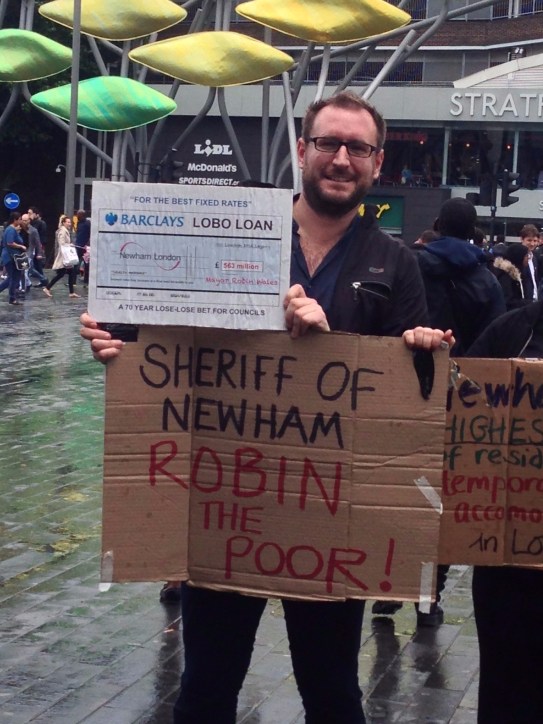 STRAT
LIDL
McDonald's
SPORTSDIRECT.
"FOR THE BEST FIXED RATES"
BARCLAYS LOBO LOAN
Newham London
£ 563 million
Mayor Robin Wales
A 70 YEAR LOSE-LOSE BET FOR COUNCILS
SHERIFF OF
NEWHAM
ROBIN
THE
POOR!
ewha
HIGHES
f resid
tempora
accomo
in Lo